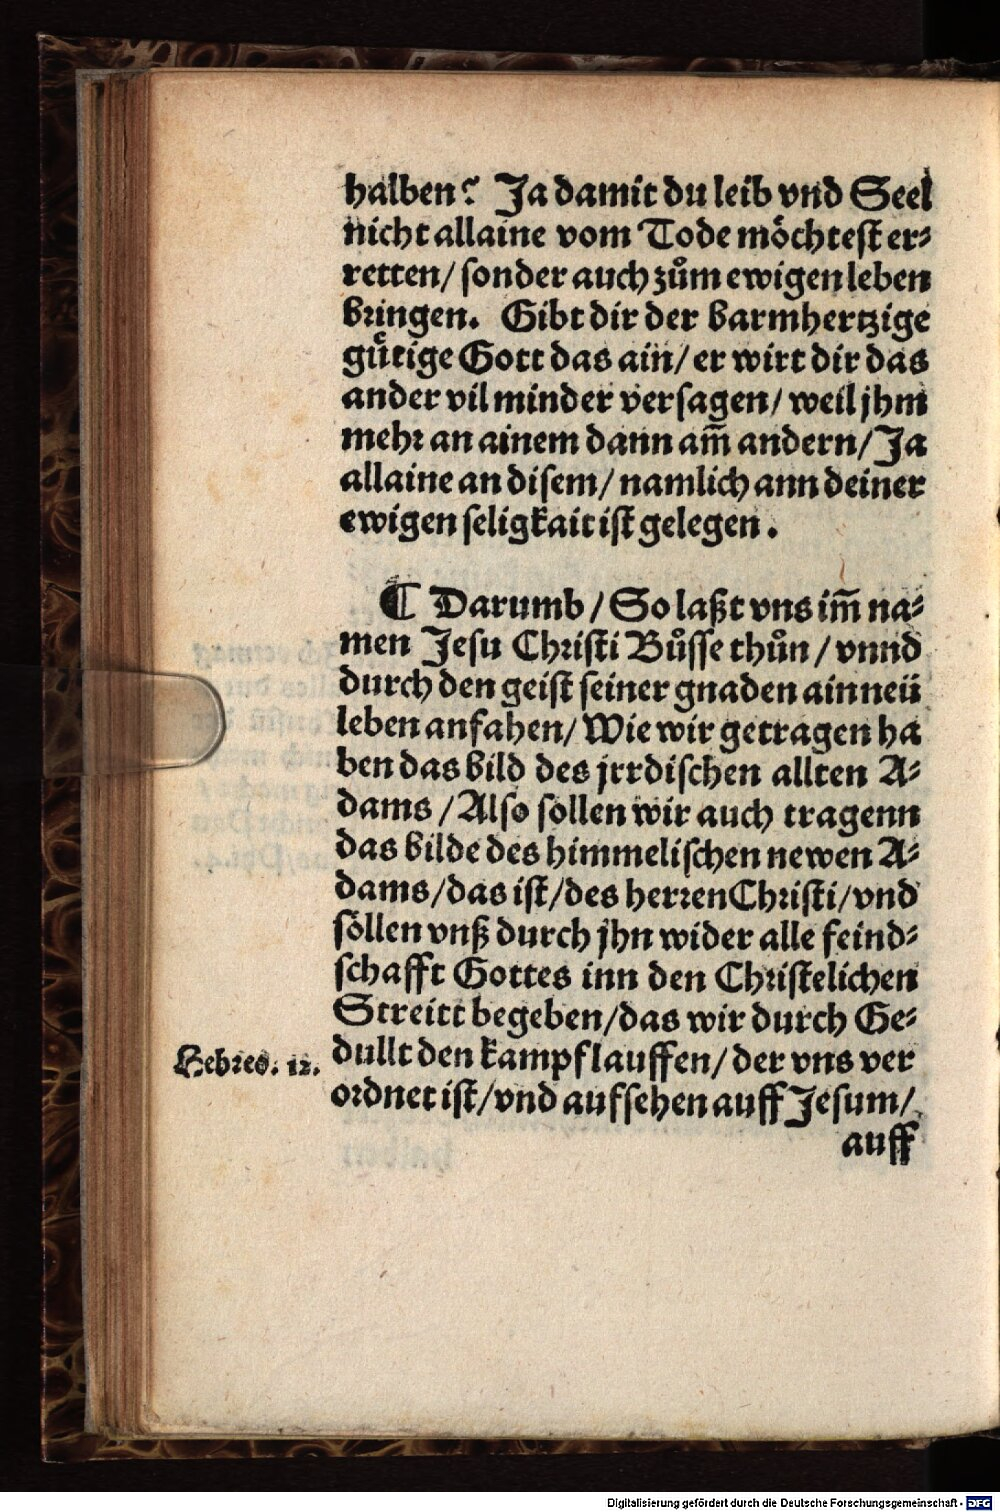 halben? Ja damit du leib vnd Seel
nicht allaine vom Tode möchtest er⸗
retten/ sonder auch zům ewigen leben
bringen. Gibt dir der barmhertzige
gütige Gott das ain/ er wirt dir das
ander vil minder versagen/ weil jhm
mehr an ainem dann am̃ andern/ Ja
allaine an disem/ namlich ann deiner
ewigen seligkait ist gelegen.
¶ Darumb/ So laßt vns im̃ na⸗
men Jesu Christi Bůsse thůn/ vnnd
durch den geist seiner gnaden ain neü
leben anfahen/ Wie wir getragen ha
ben das bild des jrrdischen allten A⸗
dams/ Also sollen wir auch tragenn
das bilde des himmelischen newen A⸗
dams/ das ist/ des herren Christi/ vnd
söllen vnß durch jhn wider alle feind⸗
schafft Gottes inn den Christelichen
Streitt begeben/ das wir durch Ge⸗
Hebreo. 12.
dullt den kampf lauffen/ der vns ver
ordnet ist/ vnd aufsehen auff Jesum/
auff
Digitalisierung gefördert durch die Deutsche Forschungsgemeinschaft - DFG